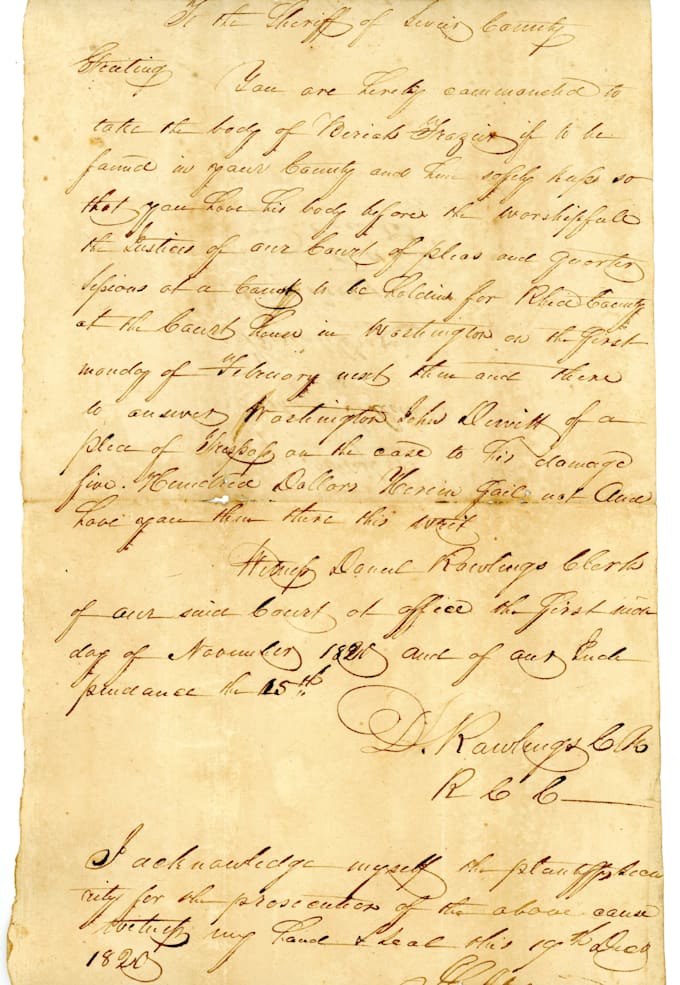 To the Sheriff of Sevier County
Greeting You are hereby commanded to
take the body of Beriah Frazier if to be
found in your County and him safely keep so
that you have his body before the worshipfull
the Justices of our Court of pleas and quarter
Sessions at a Court to be holden for Rhea County
at the Court House in Washington on the first
monday of February next then and there
to answer Washington John Dewitt of a
plea of Trespass on the case to his damage
five Hundred Dollars Herein fail not And
have you then there this writ
Witness Daniel Rawlings Clerk
of our said Court at office the first mon
day of November 1820 and of our Inde
pendance the 45th
D. Rawlings Clk
R C C
I acknowledge myself the plantiffs secu
rity for the prosecution of the above cause
Witness my hand & seal this 19th Decr
1820